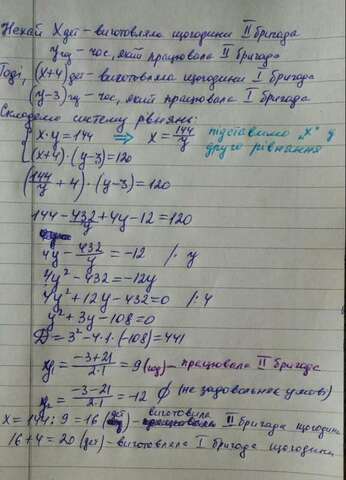 Нехай X дет - виготовляла щогодини II бригада
y год - час, який працювала II бригада
Тоді, (x+4) дет - виготовляла щогодини I бригада
(y-3) год - час, який працювала I бригада
Складемо систему рівнянь:
{ x·y=144 ⇒ x = 144/y підставимо „x" у
(x+4)·(y-3)=120 друге рівняння
(144/y + 4)·(y-3)=120
144 - 432/y + 4y - 12 = 120
4y - 432/y = -12 /· y
4y² - 432 = -12y
4y² + 12y - 432 = 0 /: 4
y² + 3y - 108 = 0
D = 3² - 4·1·(-108) = 441
y₁ = (-3+21)/(2·1) = 9 (год) - працювала II бригада
y₂ = (-3-21)/(2·1) = -12 ∅ (не задовольняє умові)
X = 144 : 9 = 16 (дет) - виготовила II бригада щогодини
16 + 4 = 20 (дет) - виготовляла I бригада щогодини